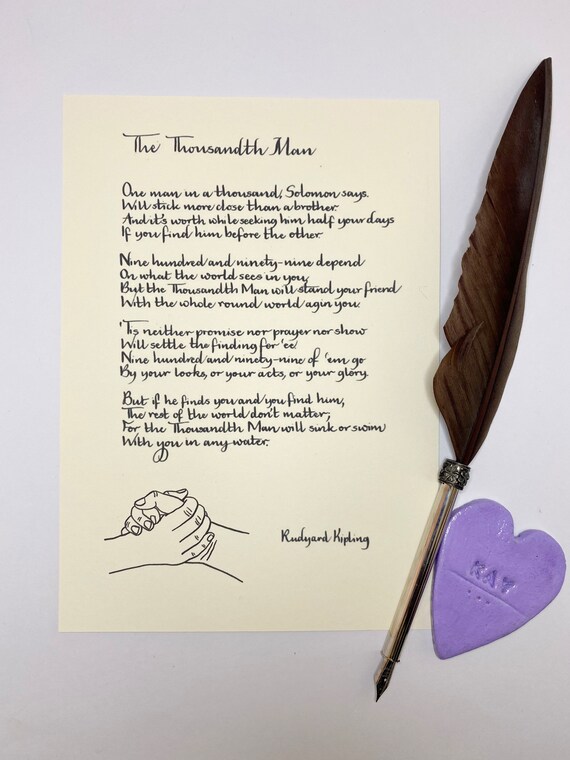 The Thousandth Man
One man in a thousand, Solomon says.
Will stick more close than a brother.
And it's worth while seeking him half your days
If you find him before the other.
Nine hundred and ninety-nine depend
On what the world sees in you,
But the Thousandth Man will stand your friend
With the whole round world agin you.
'Tis neither promise nor prayer nor show
Will settle the finding for 'ee.
Nine hundred and ninety-nine of 'em go
By your looks, or your acts, or your glory.
But if he finds you and you find him,
The rest of the world don't matter;
For the Thousandth Man will sink or swim
With you in any water.
Rudyard Kipling
KAT